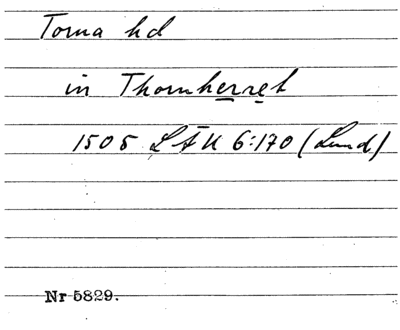 Torna hd
in Thornherret
1505 LÄU 6:170 (Lund)
Nr 5829.